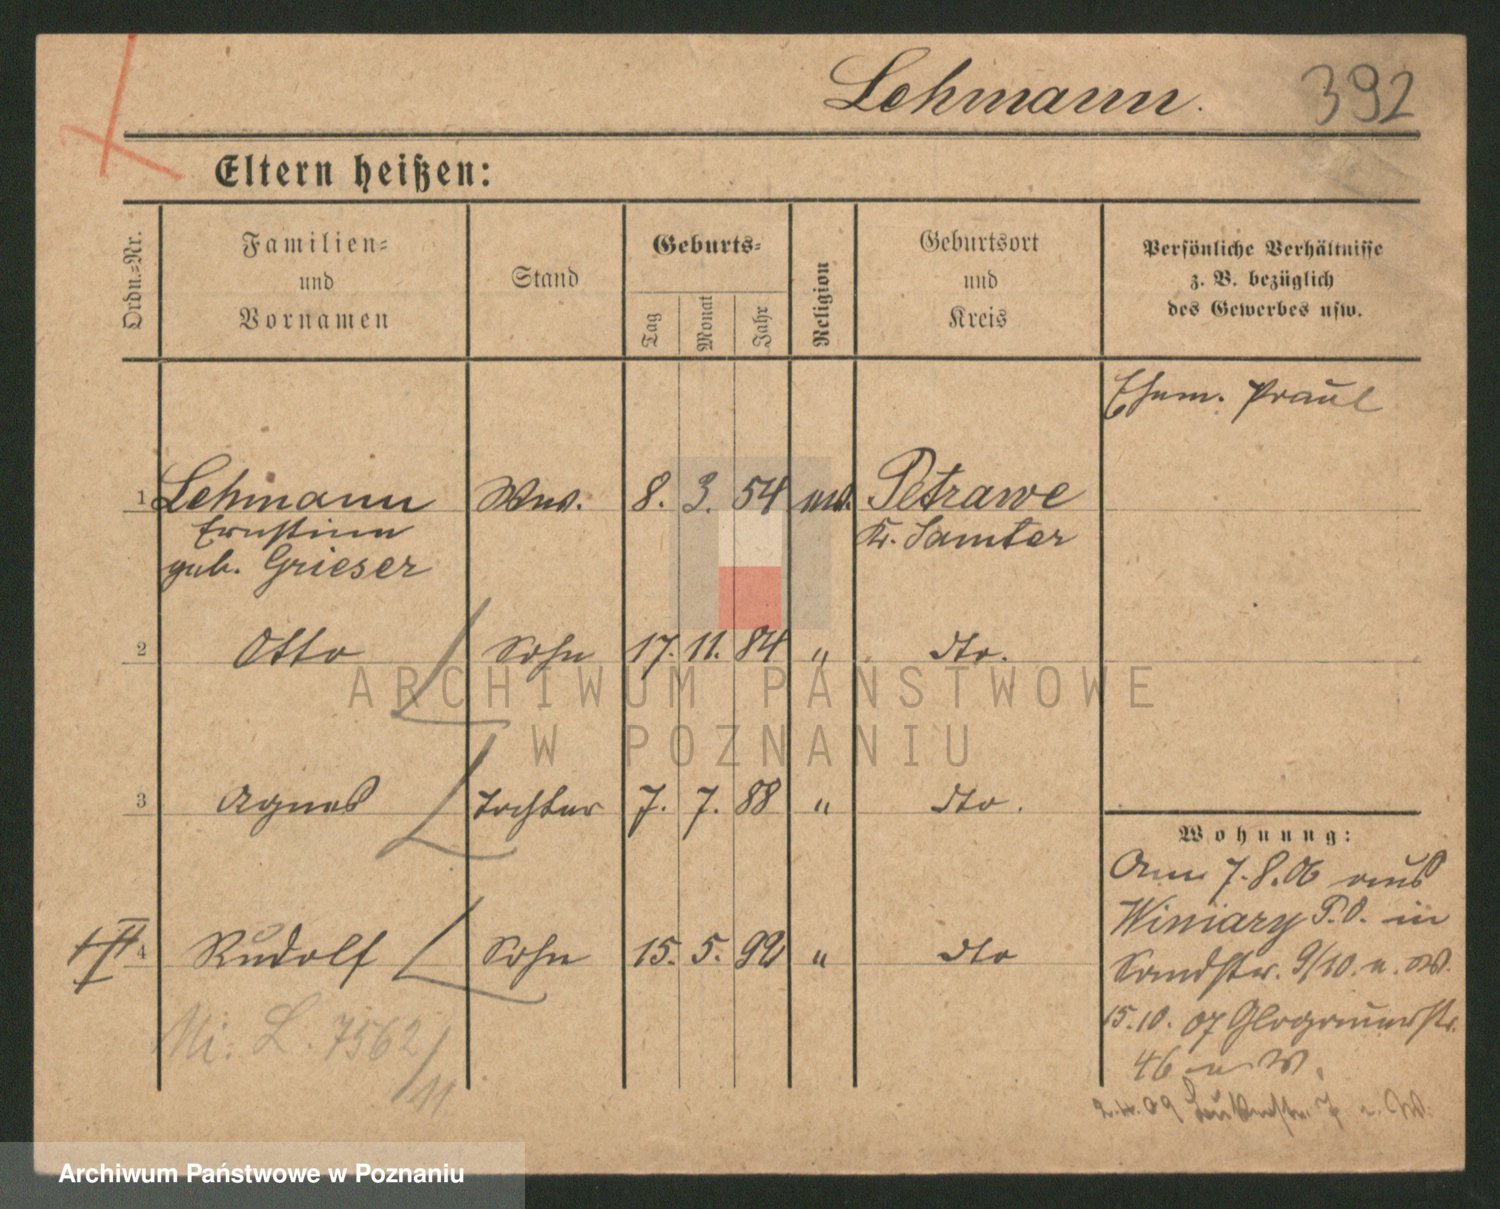 Lehmann. 392
Eltern heißen:
Ordn.=Nr.
Familien=
und
Vornamen
Stand
Geburts=
Tag
Monat
Jahr
Religion
Geburtsort
und
Kreis
Persönliche Verhältnisse
z. B. bezüglich
des Gewerbes usw.
Ehem. Paul
1 Lehmann Wwe. 8. 3. 54 Petrawe
Ernstine Kr. Samter
geb. Grieser
2 Otto Sohn 17. 11. 84 " dto.
3 Agnes Tochter 7. 7. 88 " dto.
4 Rudolf Sohn 15. 5. 92 " dto
Mi. L. 7562/11
Wohnung:
Am 7.8.06 aus
Winiary P.O. in
Sandstr. 9/10. u. W.
15.10.07 Glogauerstr.
46 u W.
2.4.09 7 u. W.
ARCHIWUM PAŃSTWOWE
W POZNANIU
Archiwum Państwowe w Poznaniu